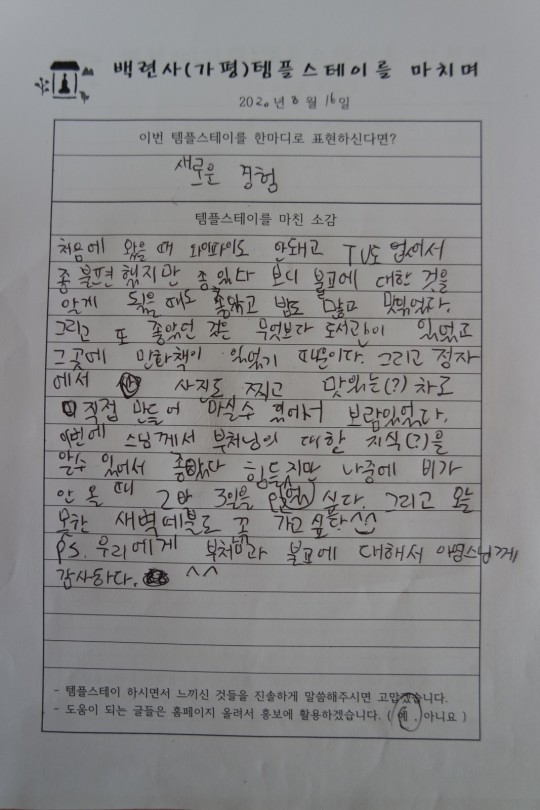 백련사(가평)템플스테이를 마치며
2020년 8월 16일
이번 템플스테이를 한마디로 표현하신다면?
새로운 경험
템플스테이를 마친 소감
처음에 왔을 때 와이파이도 안돼고 TV도 없어서
좀 불편 했지만 좀 있다 보니 불교에 대한 것을
알게 됬을 때도 좋았고 밥도 맛있었다.
그리고 또 좋았던 것은 무엇보다 도서관이 있었고
그곳에 만화책이 있었기 때문이다. 그리고 정자
에서 사진도 찍고 맛있는(?) 차로
직접 만들어 마실수 있어서 보람있었다.
이번에 스님께서 부처님의 대한 지식(?)을
알수 있어서 좋았다 힘들지만 나중에 비가
안 올 때 2박 3일을 싶다. 그리고 오늘
못한 새벽예불도 꼭 가고 싶다^^
P.S. 우리에게 부처님과 불교에 대해서 스님께
감사하다. ^^
- 템플스테이 하시면서 느끼신 것들을 진솔하게 말씀해주시면 고맙겠습니다.
- 도움이 되는 글들은 홈페이지 올려서 홍보에 활용하겠습니다. ( 예 , 아니요 )